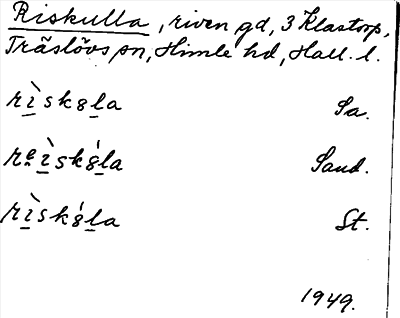 Riskulla, riven gd, 3 Klastorp,
Träslövs sn, Himle hd, Hall. l.
rìsk8la Sa.
re̤ìsk8́la Sand.
rìsk8́la St.
1949.